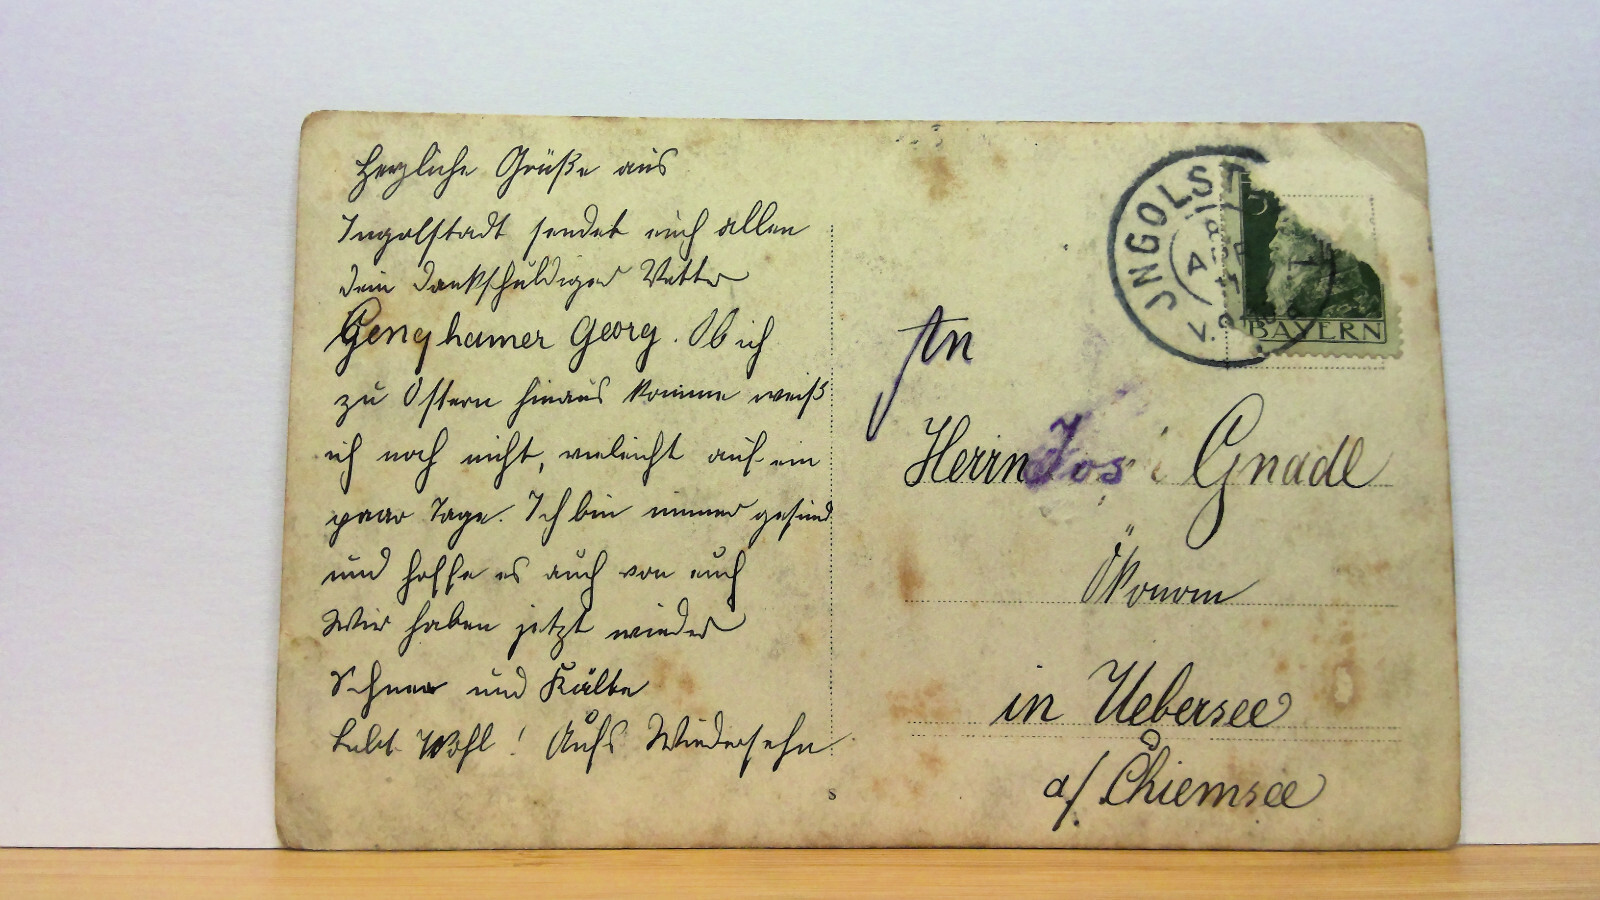 Herzliche Grüße aus
Ingolstadt sendet euch allen
dein dankschuldiger Vetter
Genghamer Georg. Ob ich
zu Ostern hinaus komme weiß
ich noch nicht, vieleicht auf ein
paar Tage. Ich bin immer gesund
und hoffe es auch von euch
Wir haben jetzt wieder
Schnee und Kälte
Lebt Wohl! Aufs Wiedersehn
An
Herrn Jos. Gnadl
Ökonom
in Uebersee
a/ Chiemsee
JNGOLST
V.
BAYERN
8